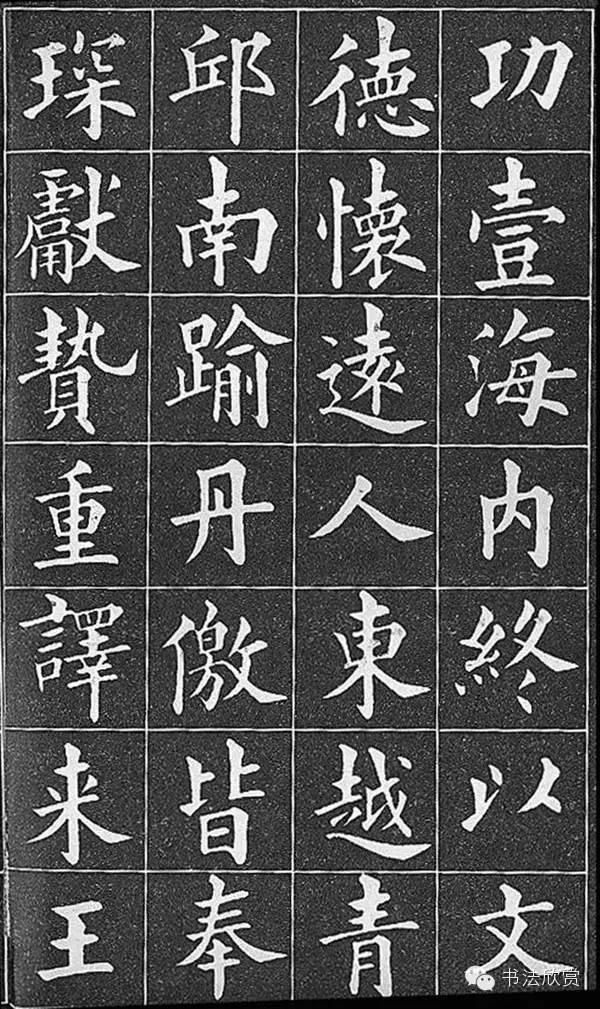 功壹海内終以文
德懷遠人東越青
邱南踰丹儌皆奉
琛獻贄重譯来王
书法欣赏